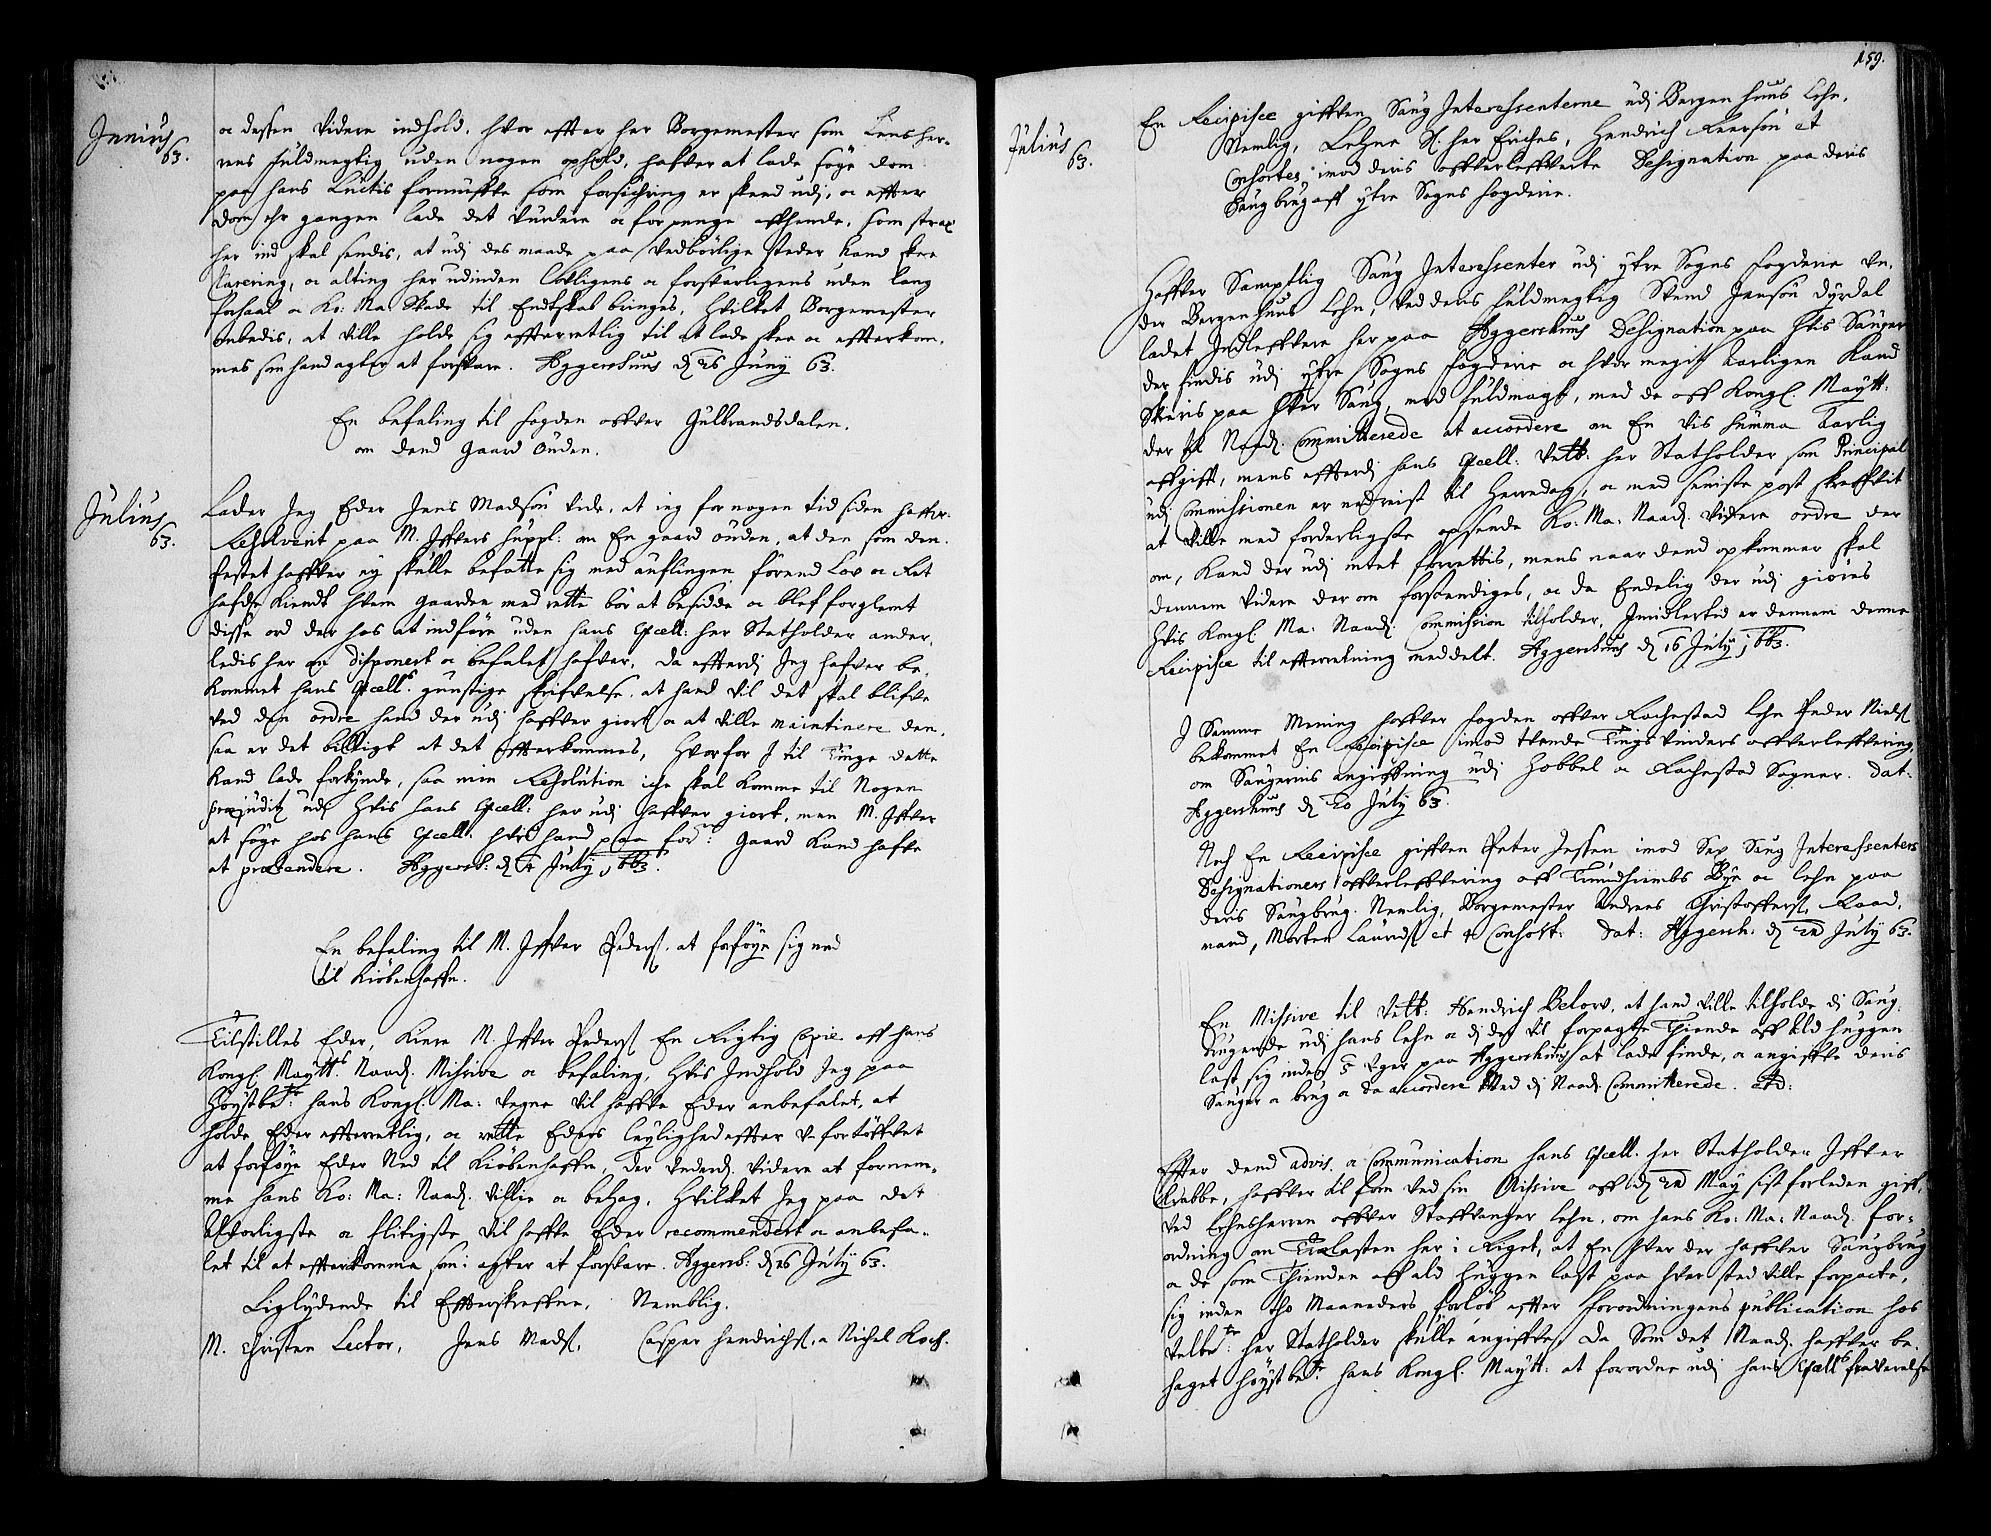 Junius
63.
oc dessen videre indhold, hvor effter her Borgemester som Lensher-
rens fuldmegtig uden nogen ophold, hafver at lade søge dom
paa hans Lensis formuffve som forsichring er skeed udj, oc effter
dom ehr gangen lade det vurdere oc for penge affhende, som strax
her ind skal sendis, at udj des maade paa vedbørlige steder kand skee
clarering, oc alting her udinden lovligens oc forsvarligens uden lang
forhaal oc Ko: Ma: skade til Endtskab bringes, hvilket Borgemester
ombedis, at ville holde sig effterretlig til at lade skee oc effterkom-
mes som hand agter at forsvare. Aggershuus d. 26 Juny 63.
En befaling til fogden offver Gulbrandsdalen,
om dend Gaard Ouden.
Julius
63.
Lader Jeg Eder Jens Madsøn vide, at ieg for nogen tid siden haffr.
Resolverit paa M. Iffvers suppl: om En gaard ouden, at den som den
festet haffver ey skulle befatte sig med auflingen førend Lov oc Ret
hafde kiendt hvem gaarden med rette bør at besidde oc blef forglemt
disse ord der hos at indføre uden hans Excell: her Statholder ander-
ledis her om disponert oc befalet hafver, da efftterdj Jeg hafver be-
kommet hans Excell:s gunstige skrifvelse, at hand vil det skal blifve
ved den ordre hand der udj haffver giort oc at ville maintinere den,
saa er det billigt at det effterkommes, hvorfor J til Tinge dette
kand lade forkynde, saa min Resolution iche skal komme til Nogen
præjuditz udj hvis hans Excell: her udj haffver giort, men M. Iffver
at søge hos hans Excell: hvis hand paa for:ne Gaard kand hafve
at prætendere. Aggersh: d. 4 July 1663.
En befaling til M. Iffver Peders. at forføye sig ned
til Kiøbenhaffn.
Tilstilles Eder, kiere M. Iffver Peders. En Rigtig Copie aff hans
Kongl. Maytts Naad. Missive oc befaling, hvis Indhold Jeg paa
høystbe:te hans Kongl. Ma: vegne vil haffve Eder anbefalet, at
holde Eder effterretlig, oc rette Eders leylighed effter u-fortøffvet
at forføye Eder Ned til Kiøbenhaffn, der underd. videre at fornem-
me hans Ko: Ma: Naad. villie oc behag, hvilket Jeg paa det
Alvorligste oc flitigste vil haffve Eder recommenderet oc anbefa-
let til at effterkomme som i agter at forsvare. Aggersh: d. 26 July 63.
Liglydende til Effterskrefne, Nemblig.
M. Christen Lector, Jens Mads., Casper hendrichs., oc Nichel Koch.
159.
Julius
63.
En Recipisce giffven Saug Interessenterne udj Bergenhuus Lehn,
Nemlig, Lehne S. her Eriches, Hendrich Leersøn et
Consortes, imod deris offverleffverte Designation paa deris
Saugbrug aff ytre Sogns fogderie.
Haffver Samptlig Saug Interessenter udj ytre Sogns fogderie un-
der Bergenhuus Lehn, ved deris fuldmegtig Svend Jansøn dyrdal
ladet Indleffvere her paa Aggershuus Designation paa hvis Sauger
der findis udj ytre Sogns fogderie oc hvor megit aarligen kand
skæris paa hver Saug, med fuldmagt, med de aff Kongl. Maytt:
der til Naad. Committerede at accordere om En vis summa aarlig
affgifft, mens effterdj hans Excell: Velb: her Statholder som Principal
udj Commissionen er nedreist til Herredag, oc med seeniste post skreffvit
at ville med forderligste opsende Ko: Ma: Naad. videre ordre der
om, kand der udj intet forrettis, mens naar dend opkommer skal
dennem videre der om forstendiges, oc da Endelig der udj giøres
hvis Kongl. Ma: Naad. Commission tilholder, Jmidlertid er dennem denne
Recipisce til effterretning meddelt. Aggershuus d. 16 July 1663.
J Samme Mening haffver fogden offver Rachestad Lehn Peder Niels.
bekommet En Recipisce imod tvende Tings vinders offverleffvering,
om Saugernis angiffvning udj Hobbel oc Rachestad Sogner. Dat:
Aggershuus d. 20 July 63.
Noch En Recipisce giffven Peter Jessen imod Sex Saug Interessenters
Designationers offverleffvering aff Trundhiembs Bye oc Lehn paa
deris Saugbrug. Nemlig, Borgemester Andreas Christoffers. Raad-
mand, Morten Laurids. et 4 Consort: Dat: Aggersh: d. 22 July 63.
En Missive til Velb: Hendrich Below, at hand ville tilholde dj Saug-
brugende udj hans lehn oc dj der vil forpagte Thiende aff ald huggen
last, sig inden 5 uger paa Aggershuus at lade finde, oc angiffve deris
Sauger oc brug oc da accordere Med dj Naad. Committerede. etc:
Effter dend advis. oc Communication hans Excell: her Statholder Iffver
Krabbe, haffver til form ved sin Missive aff d. 22 May sist forleden giff-
ved Lehnsherren offver Staffvanger Lehn, om hans Ko: Ma: Naad. for-
ordning om Trælasten her i Riget, at En hver der haffver Saugbrug
oc de som Thienden aff ald huggen last paa hver sted ville forpacte,
sig inden tho Maaneders forløb effter forordningens publication hos
velbe:te her Statholder skulle angiffve, da Som det Naad. haffver be-
haget høystbe:te hans Kongl. Maytt: at forordne udj hans Excells fraverelse